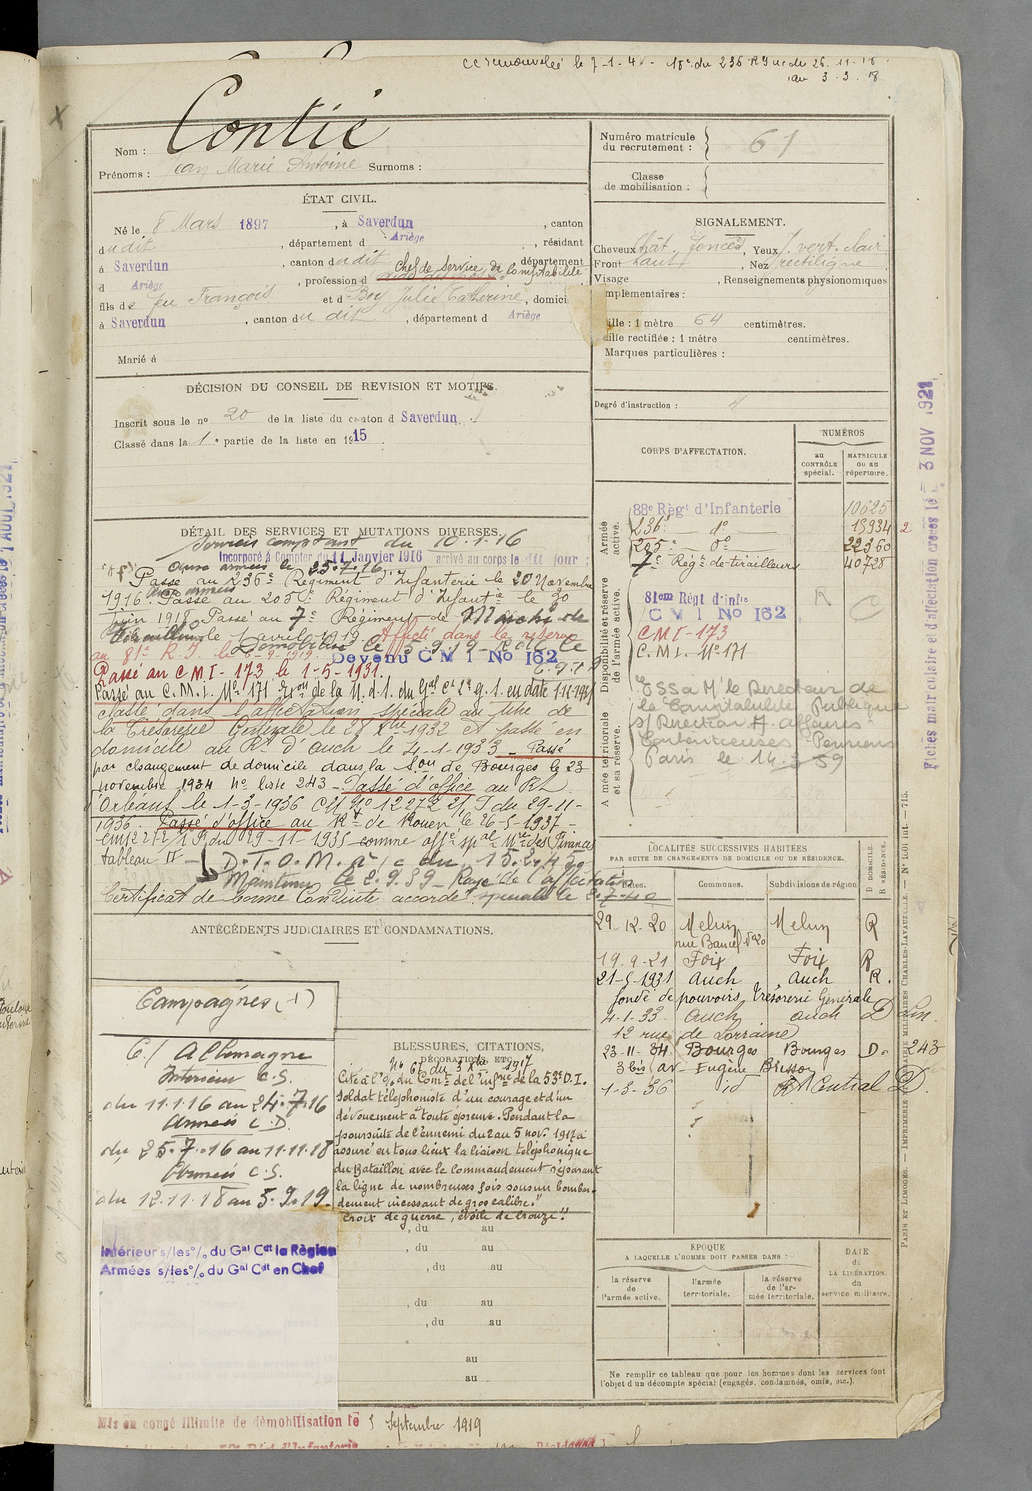 le 7-1-4
18e du 236 R I du 26.11.18
au 3-3.18
Contié
Nom :
Prénoms : Jean Marie Antoine Surnoms :
Numéro matricule du recrutement : 61
Classe de mobilisation :
ÉTAT CIVIL.
Né le 8 Mars 1897, à Saverdun, canton
dudit, département d Ariège, résidant
à Saverdun, canton dudit, département
d Ariège, profession d Chef de service de Comptabilité
fils de feu François et de Boy Julie Catherine, domicilié
à Saverdun, canton du dit, département d Ariège
Marié à
SIGNALEMENT.
Cheveux chât. foncés, Yeux vert clair
Front haut, Nez rectiligne
Visage , Renseignements physionomiques
complémentaires :
Taille : 1 mètre 64 centimètres.
Taille rectifiée : 1 mètre centimètres.
Marques particulières :
Degré d'instruction : 4
DÉCISION DU CONSEIL DE REVISION ET MOTIFS.
Inscrit sous le no 20 de la liste du canton d Saverdun
Classé dans la 1e partie de la liste en 1915
CORPS D'AFFECTATION.
NUMÉROS
au CONTRÔLE spécial.
MATRICULE ou au répertoire.
Armée active.
88e Régt d'Infanterie 10625
236e do 13934
205e do 22360
7e Rég. de tirailleurs 40728
Disponibilité et réserve de l'armée active.
81em Régt d'infie
C M I No 162
CMI-173
C.M.I. No 171
R
Armée territoriale et sa réserve.
ESSA Mr le Directeur de
la Comptabilité Publique
s/ Direction A affaires
Contentieuses - Pensions
Paris le 14-3-39
Fiches matriculaire et d'affectation créées le 3 NOV 1921
DÉTAIL DES SERVICES ET MUTATIONS DIVERSES.
Services comptant du 10.1.16
Incorporé à Compter du 11 Janvier 1916 arrivé au corps le dit jour
Aux armées le 25.7.16
Passé au 236e Régiment d'Infanterie le 20 Novembre
1916. Passé au 205e Régiment d'Infantie le 30
Juin 1918 Passé au 7e Régiment de Marche de
Tirailleurs le avril 1919 Affecté dans la réserve
au 81e R.I. Démobilisé le 5-9-19
Devenu C M I No 162
Passé au CMI-173 le 1-5-1931.
Passé au C.M.I. No 171
classé dans l'affectation spéciale au titre de
la Trésorerie Générale le 1932 et passé en
domicile au Rt D'auch le 4-1-1933 - Passé
par changement de domicile dans la Son de Bourges le 23
novembre 1934 no liste 243 - Passé d'office au Rt
d'Orléans le 1-3-1936 du 29-11-
1936. Passé d'office au Rt de Rouen le 26-5-1937 -
du 29-11-1935 comme affé spal Mre des Finances
tableau II
D.T.O.M. a/c du 15.2.45
Maintenu le 2.9.39 - Rayé de l'affectation
Certificat de bonne Conduite accordé
spéciale le
ANTÉCÉDENTS JUDICIAIRES ET CONDAMNATIONS.
LOCALITÉS SUCCESSIVES HABITÉES
PAR SUITE DE CHANGEMENTS DE DOMICILE OU DE RÉSIDENCE.
Dates. Communes. Subdivisions de région
D DOMICILE. R RÉSIDENCE.
29-12-20 Melun Melun R
rue Bancel No 20
19-9-21 Foix Foix R
21-5-1931 Auch Auch R.
fondé de pouvoirs, Trésorerie Générale
4-1-33 Auch Auch D
12 rue de Lorraine
23-11-34 Bourges Bourges D. 243
3 bis av Eugène Brisson
1-3-36 id Rt Central D.
Campagnes (1)
C/ Allemagne
Intérieur C.S.
du 11.1.16 au 24.7.16
Armées C.D.
du 25.7.16 au 11.11.18
Armées C.S.
du 12.11.18 au 5.9.19
Intérieur s/les % du Gal Cdt la Région
Armées s/les % du Gal Cdt en Chef
BLESSURES, CITATIONS,
DÉCORATIONS, ETC.
Cité à l'o. du Comt de l'infrie de la 53e D.I.
no 61 du 3 Xbre 1917
Soldat téléphoniste d'un courage et d'un
dévouement à toute épreuve. Pendant la
poursuite de l'ennemi du 2 au 5 nov. 1917 a
assuré en tous lieux la liaison téléphonique
du Bataillon avec le Commandement réparant
la ligne de nombreuses fois sous un bombar-
dement incessant de gros calibre."
Croix de guerre, étoile de bronze".
, du au
, du au
, du au
, du au
, du au
au
au
ÉPOQUE
A LAQUELLE L'HOMME DOIT PASSER DANS :
la réserve de l'armée active.
l'armée territoriale.
la réserve de l'armée territoriale.
DATE de LA LIBÉRATION. du service militaire.
Ne remplir ce tableau que pour les hommes dont les services font
l'objet d'un décompte spécial (engagés, condamnés, omis, etc.).
PARIS ET LIMOGES. — IMPRIMERIE LIBRAIRIE MILITAIRES CHARLES-LAVAUZELLE. — No 1401 int. — 715.
Mis en congé illimité de démobilisation le 5 Septembre 1919